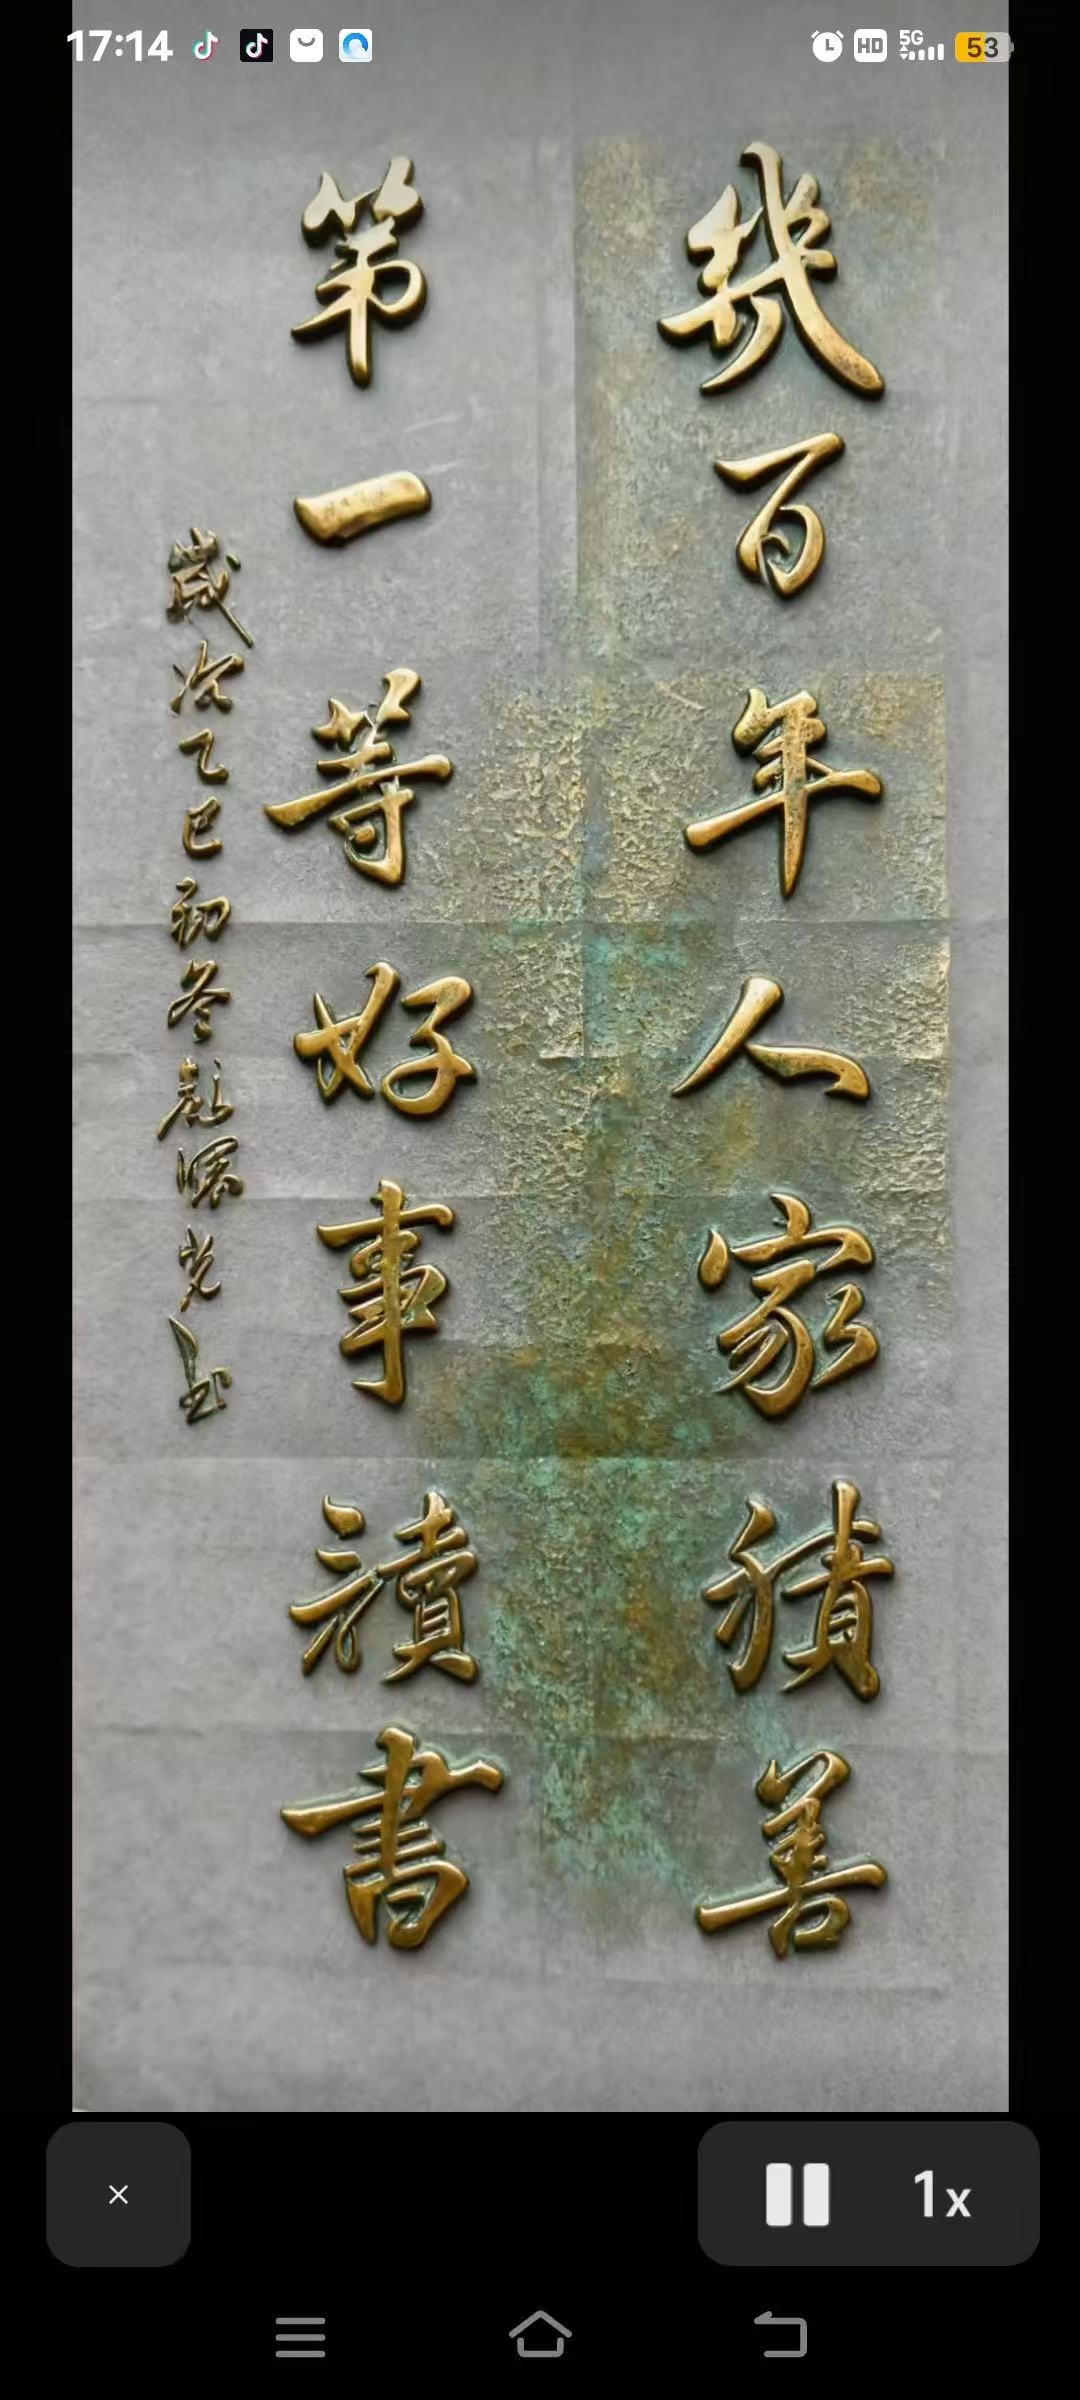 17:14
HD
5G
53
幾百年人家積善
第一等好事讀書
歲次乙巳初冬
1x